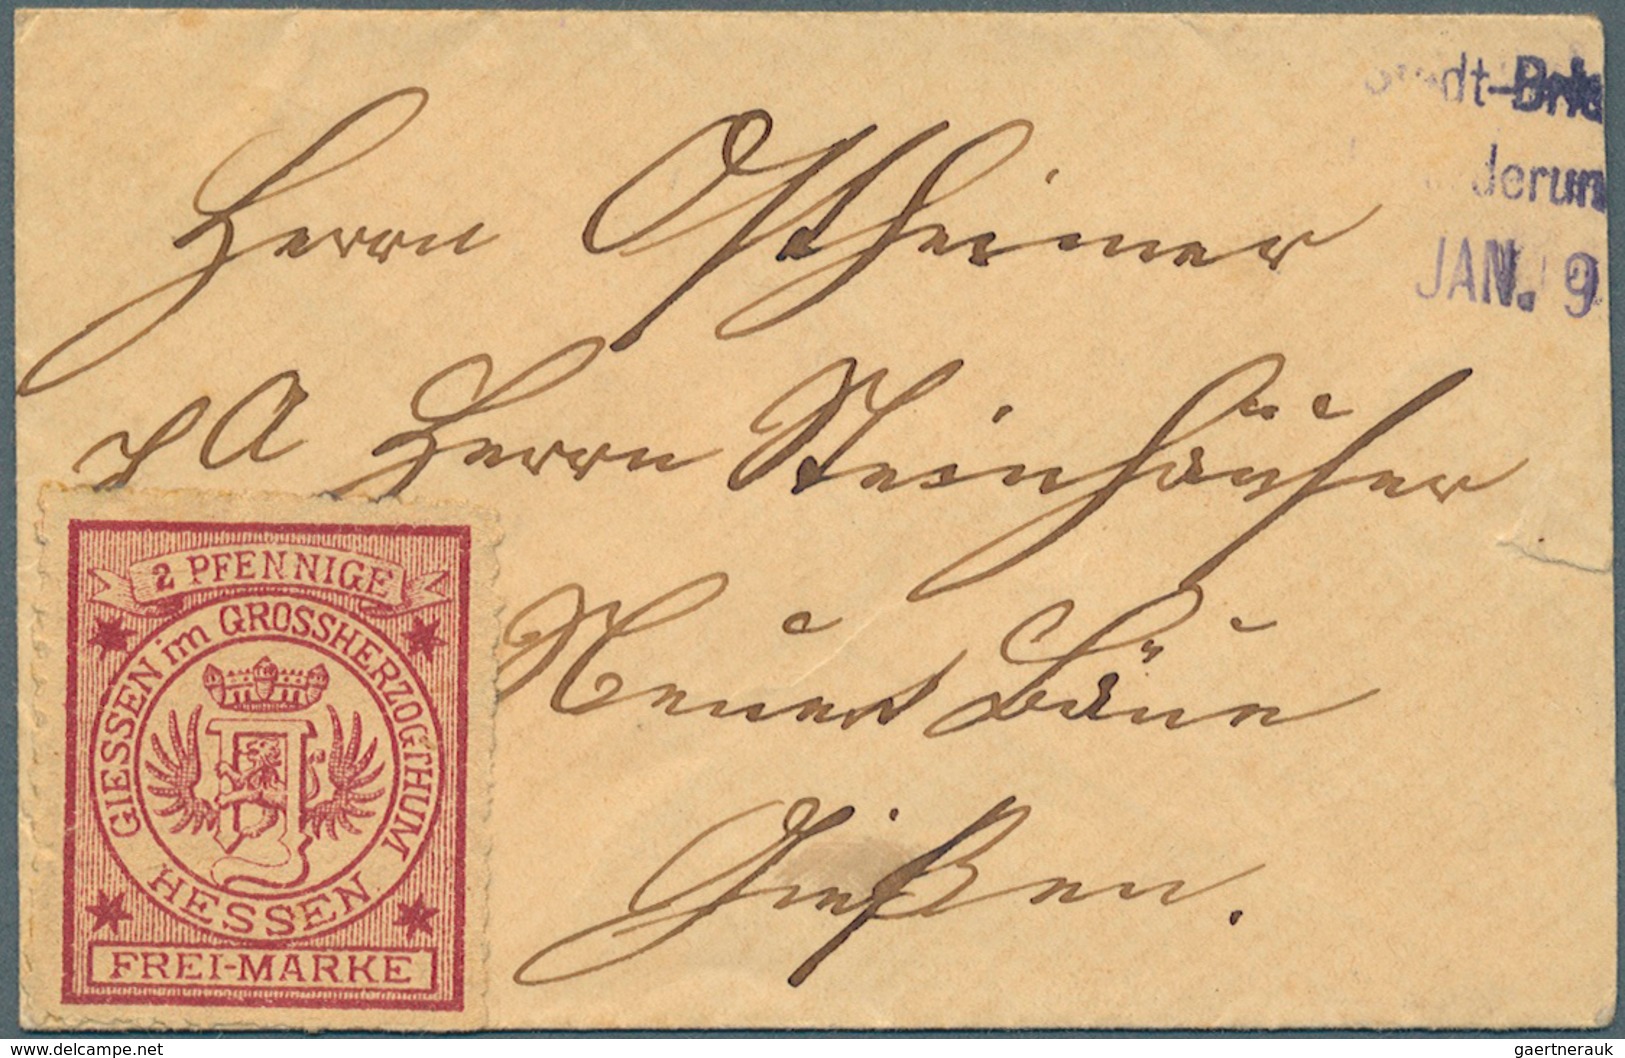 Stadt-Brie
derun
JAN. 9
Herrn Ostheimer
p A Herrn Steinhäuser
Neuen Bäue
Gießen.
2 PFENNIGE
GIESSEN im GROSSHERZOGTHUM
HESSEN
FREI-MARKE
www.delcampe.net
gaertnerauk